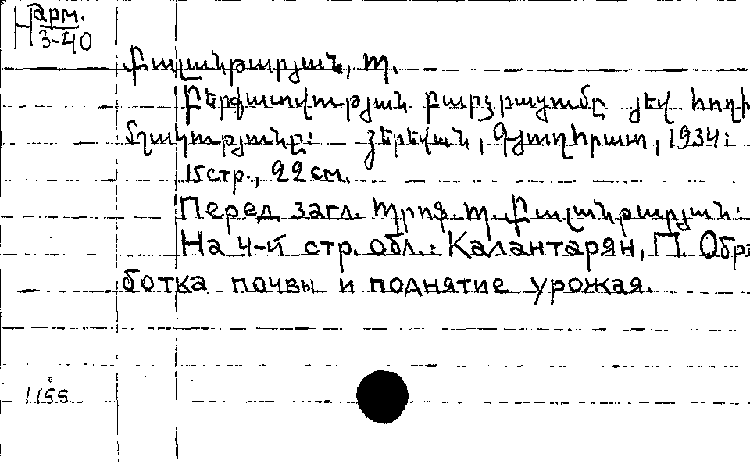 Нарм.
3-40
Քալանթարյան, Պ.
Բերքատվության բարձրացումը յեվ հողի
մշակությունը։ Յերեվան, Գյուղհրատ, 1934։
15 стр., 22 см.
Перед загл. Պրոֆ. Պ. Քալանթարյան։
На 4-й стр. обл.: Калантарян, П. Обра
ботка почвы и поднятие урожая.
1155